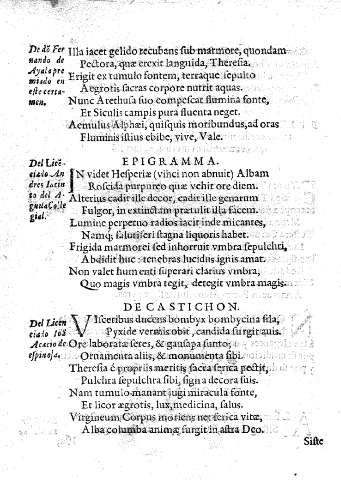 De dō Fer
nando de
Ayala pre
miado en
este certa-
men.
Illa iacet gelido recubans sub marmore, quondam
Pectora, quæ erexit languida, Theresia.
Erigit ex tumulo fontem, terraque sepulto
Aegrotis sacras corpore nutrit aquas.
Nunc Arethusa suo compescat flumina fonte,
Et Siculis campis pura fluenta neget.
Aemulus Alphæi, quisquis moribundus, ad oras
Fluminis istius ebibe, vive, Vale.
EPIGRAMMA.
Del Licē
ciado An
dres Iacin
to del A-
guila Colle
gial.
INvidet Hesperiæ (vinci non abnuit) Albam
Roscida purpureo quæ vehit ore diem.
Alterius cadit ille decor, cadit ille genarum
Fulgor, in extinctam prætulit illa facem.
Lumine perpetuo radios iacit inde micantes,
Namq; salutiferi stagna liquoris habet.
Frigida marmorei sed inhorruit vmbra sepulchri,
Abdidit huc tenebras lucidus ignis amat.
Non valet humenti superari clarius vmbra;
Quo magis vmbra tegit, detegit vmbra magis.
DECASTICHON.
Del Licen
ciado Iosé
Acacio de
espinosa.
VIsceribus ducens bombyx bombycina fila,
Pyxide vermis obit, candida surgit auis.
Ore laboratæ setes, & gausapa sunto;
Ornamenta aliis, & monumenta sibi.
Theresia è propriis meritis sacra serica pectit,
Pulchra sepulchra sibi, signa decora suis.
Nam tumulo manant jugi miracula fonte,
Et licor ægrotis, lux, medicina, salus.
Virgineum Corpus moriens net serica vitæ,
Alba columba animæ surgit in astra Deo.
Siste